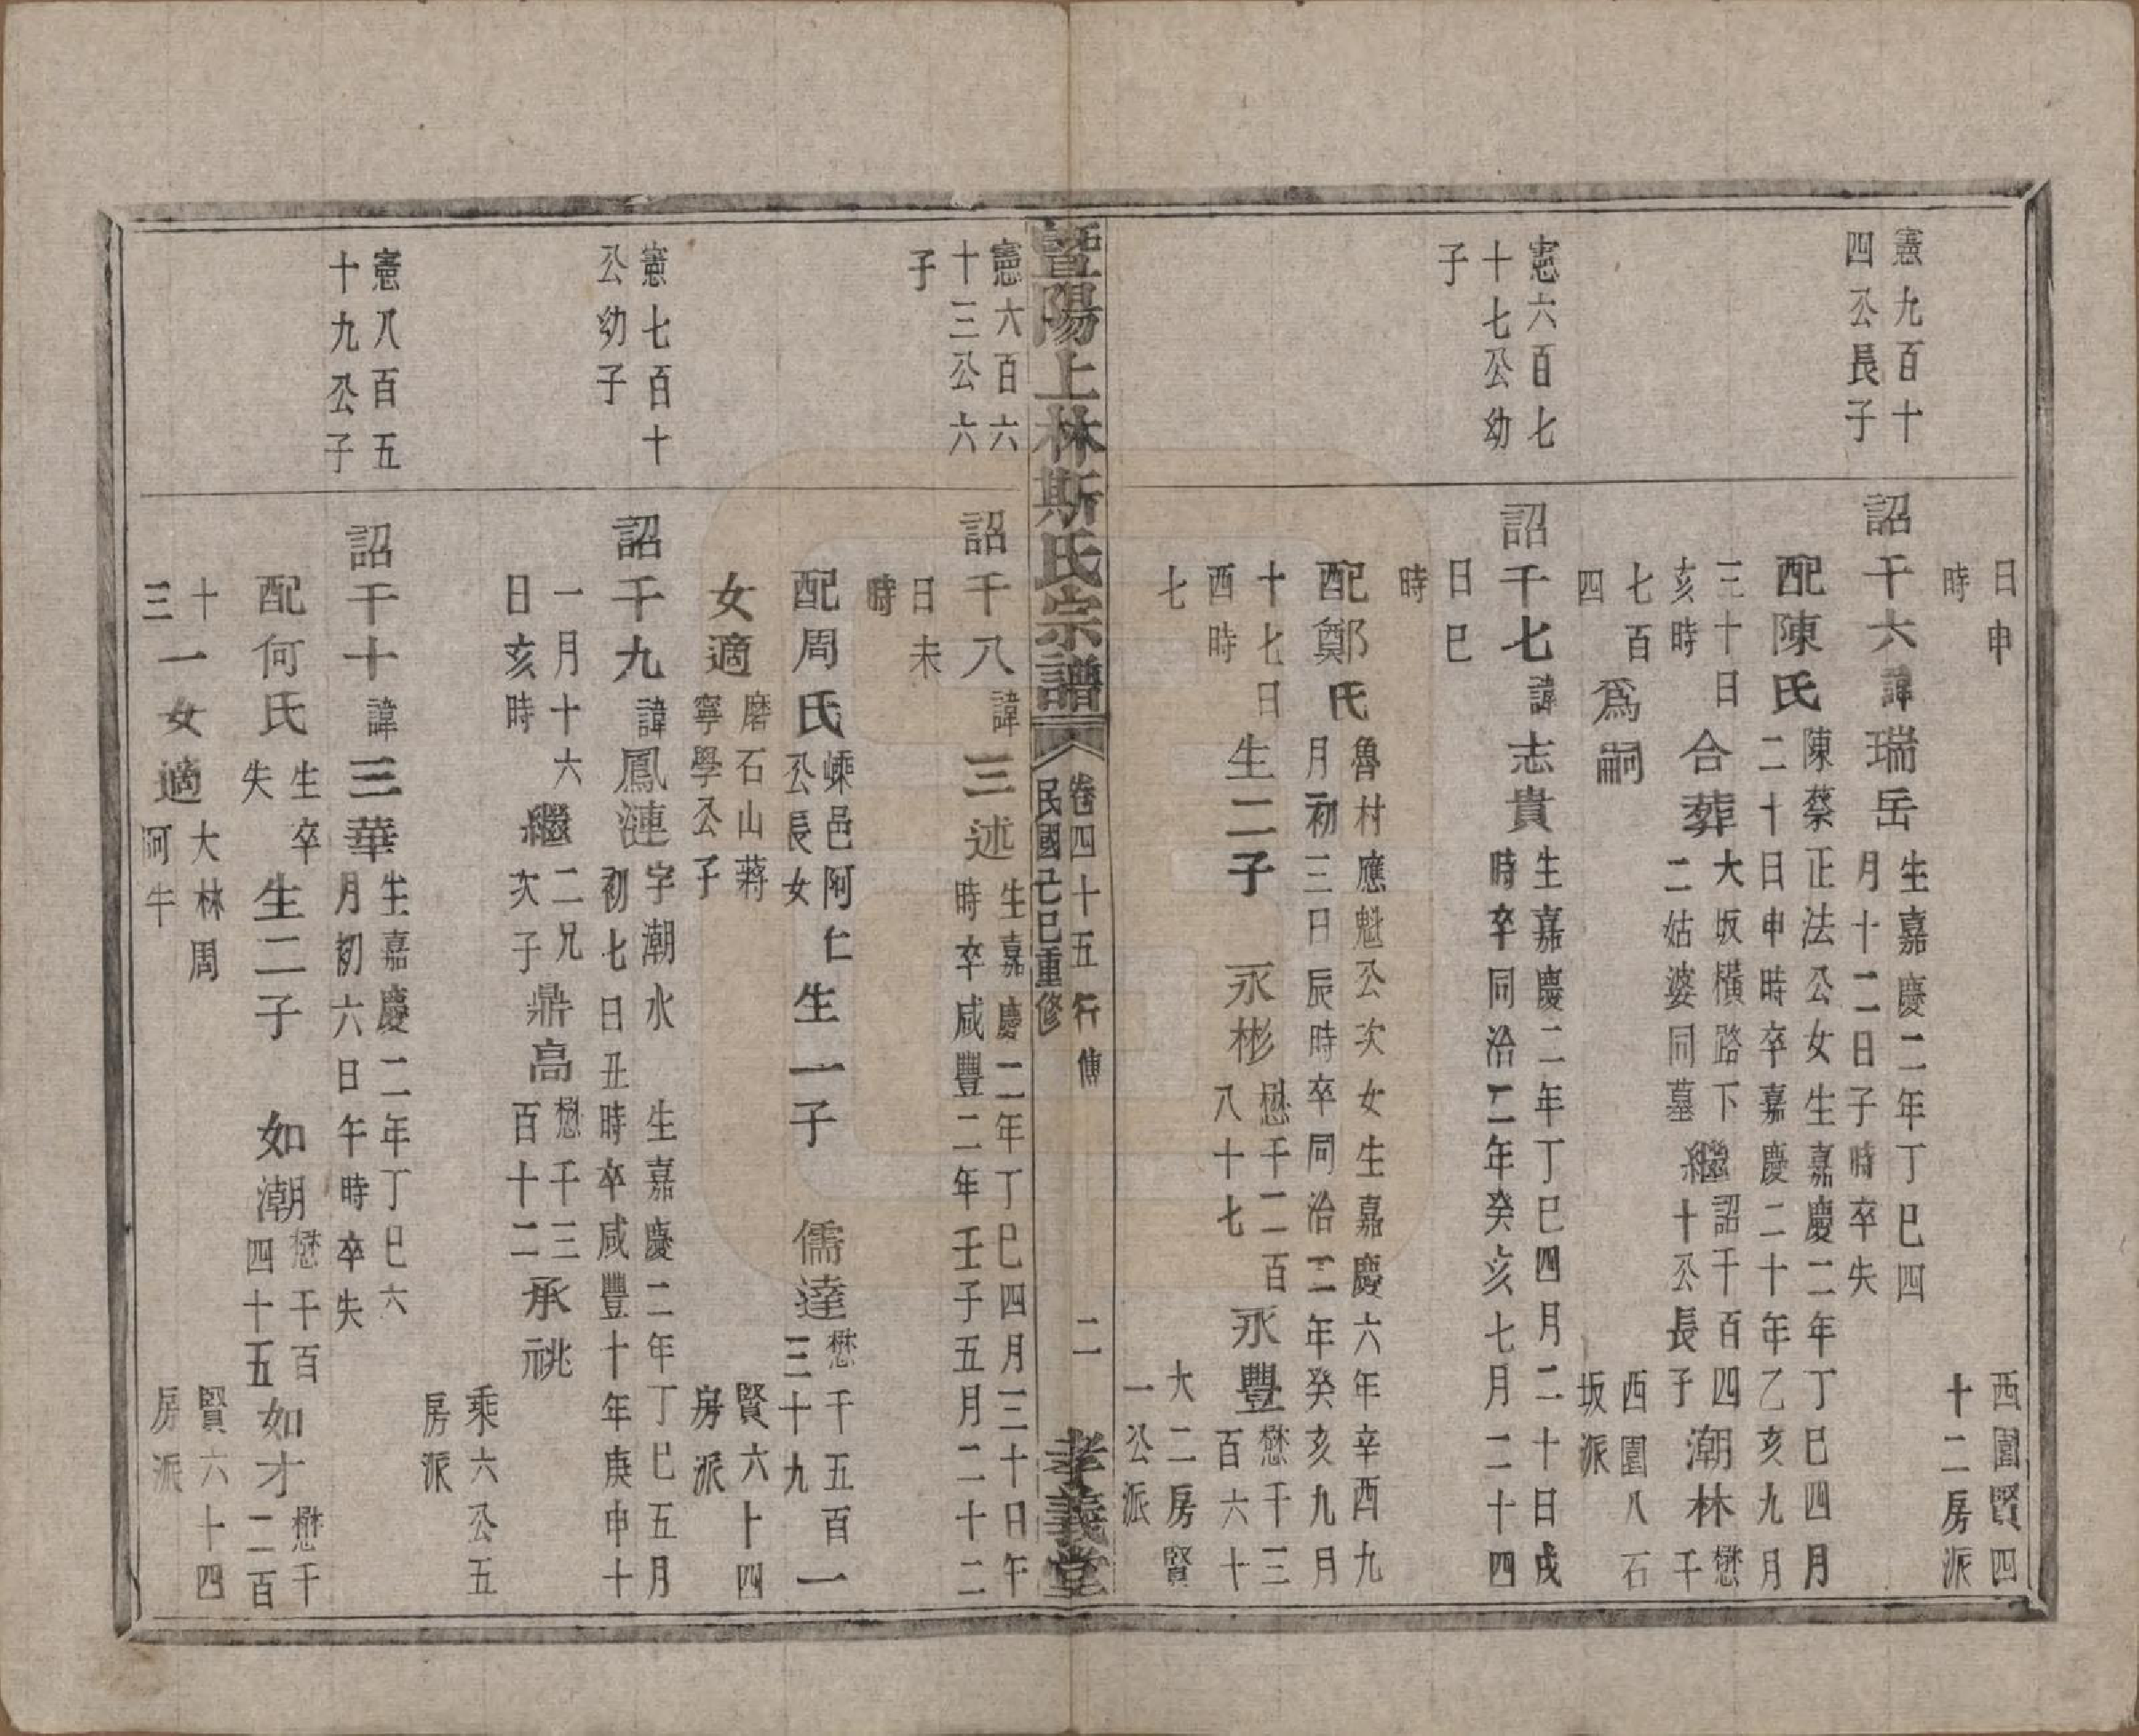 日申時
西園賢四十二房派
憲九百十四公長子
詔千六諱瑞岳生嘉慶二年丁巳四月十二日子時卒失
配陳氏陳蔡正法公女生嘉慶二年丁巳四月二十日申時卒嘉慶二十年乙亥九月
三十日亥時合葬大坂橫路下二姑婆同墓繼詔千百四十公長子潮林懋千
七百四爲嗣
西園八石坂派
憲六百七十七公幼子
詔千七諱志貴生嘉慶二年丁巳四月二十日戌時卒同治二年癸亥七月二十四
日巳時
配鄭氏魯村應魁公次女生嘉慶六年辛酉九月初三日辰時卒同治二年癸亥九月
十七日酉時生二子永彬懋千二百八十七永豐懋千三百六十
七
大二房賢一公派
暨陽上林斯氏宗譜
卷四十五行傳
民國己巳重修
二
孝義堂
憲六百六十三公六子
詔千八諱三述生嘉慶二年丁巳四月三十日午時卒咸豐二年壬子五月二十二
日未時
配周氏嵊邑阿仁公長女生一子儒達懋千五百一三十九
女適磨石山蔣寧學公子
賢六十四房派
憲七百十公幼子
詔千九諱鳳漣字潮水生嘉慶二年丁巳五月初七日丑時卒咸豐十年庚申十
一月十六日亥時繼二兄次子鼎高懋千三百十二承祧
乘六公五房派
憲八百五十九公子
詔千十諱三華生嘉慶二年丁巳六月初六日午時卒失
配何氏生卒失生二子如潮懋千百四十五如才懋千二百
十三一女適大林周阿牛
賢六十四房派